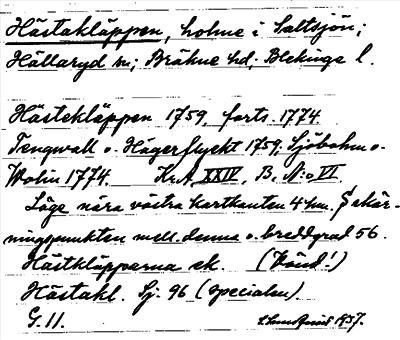 Hästakläppen, holme i Saltsjön;
Hällaryd sn; Bräkne hd; Blekinge l.
Hästekläppen 1759, forts. 1774.
Tengwall o. Hägerflyckt 1759, Sjöbohm o.
Wolin 1774. Kr.A. XXIV, B, N:o VI.
Läge nära västra kartkanten 4 hm. S skär-
ningspunkten mell. denna o. breddgrad 56.
Hästkläpparna ek. (Känd!)
Hästakl. Sj. 96 (specialen).
G. 11. 1937.